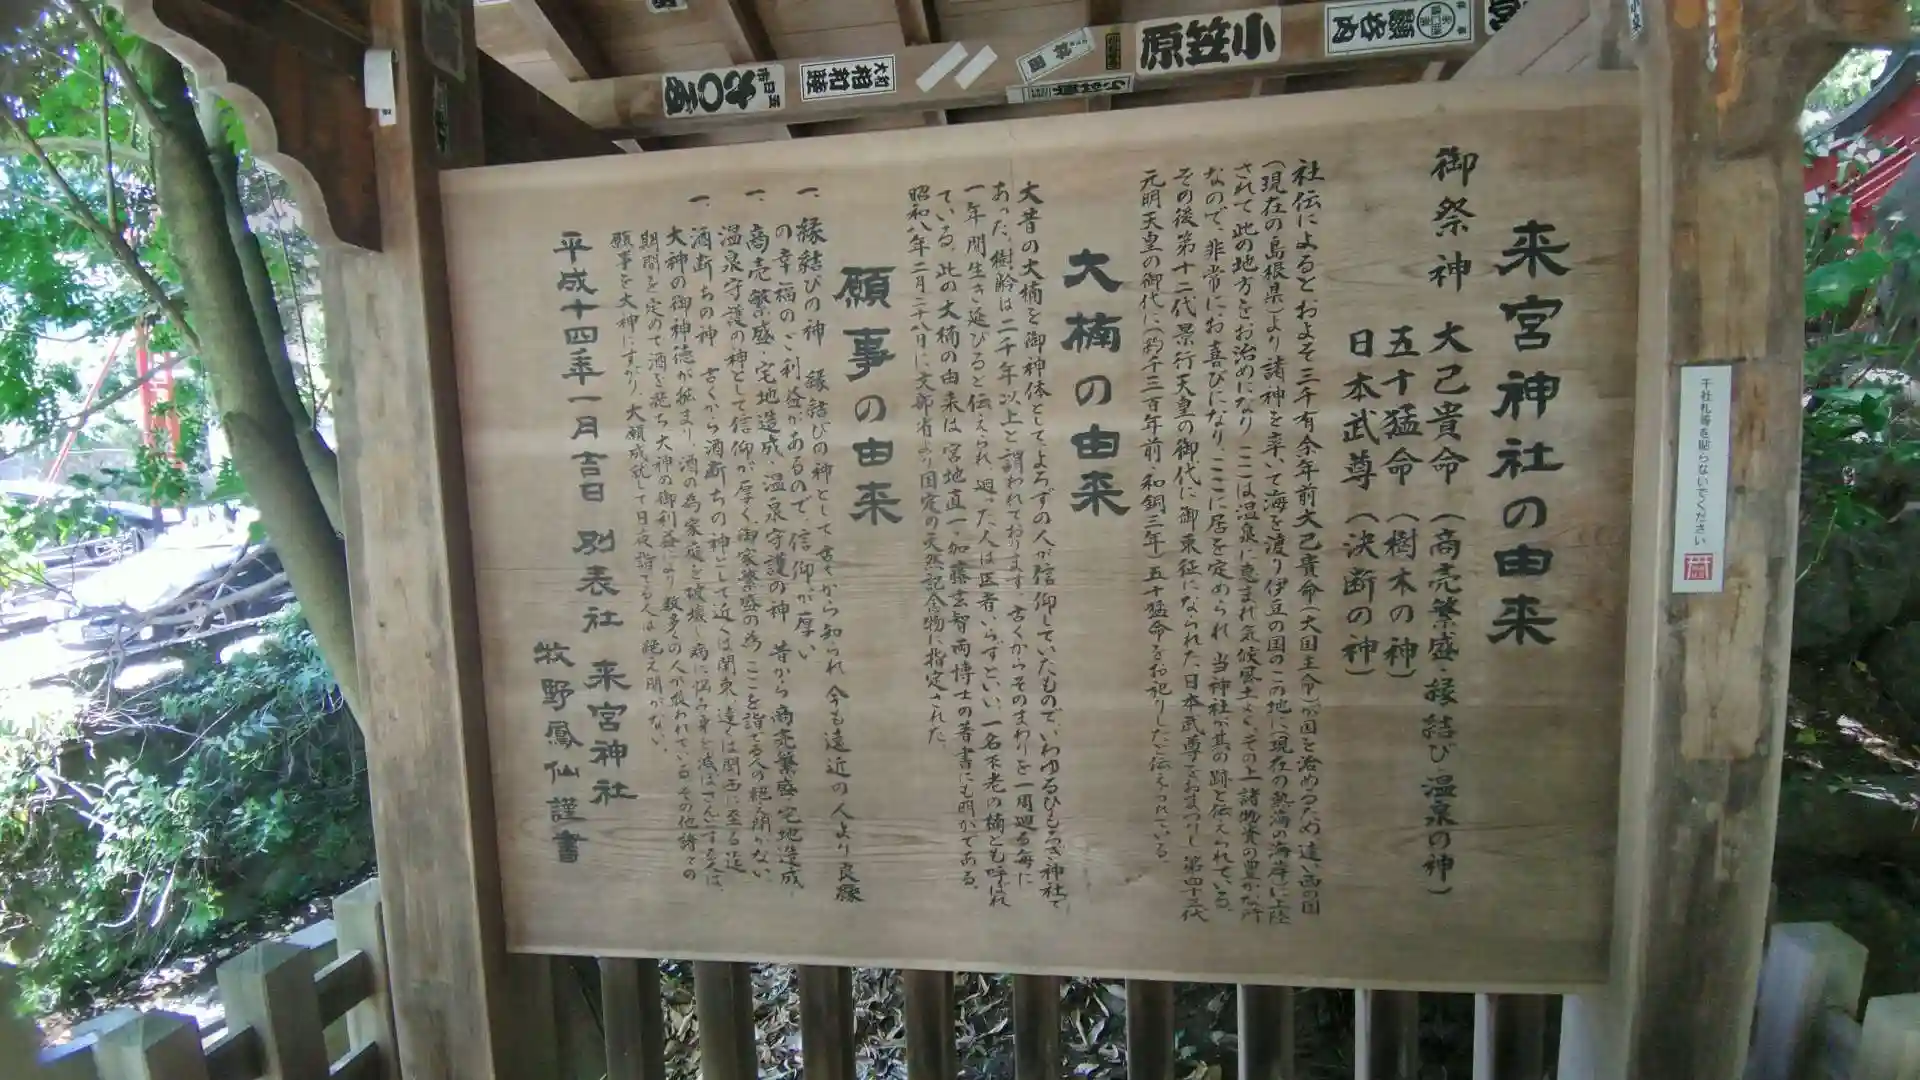 来宮神社の由来
御祭神 大己貴命（商売繁盛・縁結び・温泉の神）
五十猛命（樹木の神）
日本武尊（決断の神）
社伝によるとおよそ三千有余年前大己貴命（大国主命）が国を治めるため遠い西の国
（現在の島根県）より諸神を率いて海を渡り伊豆の国のこの地に（現在の熱海の海岸）に上陸
されて此の地方をお治めになり、ここは温泉に恵まれ気候風土よく、その上諸物資の豊かな所
なので、非常にお喜びになり、ここに居を定められ、当神社が其の跡と伝えられている。
その後第十二代景行天皇の御代に御東征になられた日本武尊をおまつりし第四十三代
元明天皇の御代に（約千三百年前・和銅三年）五十猛命をお祀りしたと伝えられている。
大楠の由来
大昔の大楠を御神体としてよろずの人が信仰していたもので、いわゆるひもろぎ神社で
あった。樹齢は二千年以上と謂われております。古くからそのまわりを一周廻る毎に
一年間生き延びると伝えられ、廻った人は医者いらずといい、一名不老の楠とも呼ばれ
ている。此の大楠の由来は宮地直一・加藤玄智両博士の昔書にも明かである。
昭和八年二月二十八日に文部省より国定の天然記念物に指定された。
願事の由来
一、縁結びの神 縁結びの神として古くから知られ今も遠近の人より良縁
の幸福のご利益があるので、信仰が厚い
一、商売繁盛・宅地造成・温泉守護の神 昔から商売繁盛・宅地造成・
温泉守護の神として信仰が厚く御家繁盛の為ここを詣でる人の絶え間がない。
一、酒断ちの神 古くから酒断ちの神として近くは関東、遠くは関西に至る迄
大神の御神徳が拡まり、酒の為家庭を破壊し病に悩み身を滅ぼさんとする人は、
期間を定めて酒を絶ち大神の御利益により数多くの人が救われている。その他諸々の
願事を大神にすがり、大願成就して日夜詣でる人は絶え間がない。
平成十四年一月吉日 別表社 来宮神社
牧野鳳仙謹書
千社札等を貼らないでください
小笠原
大和
柏和陸